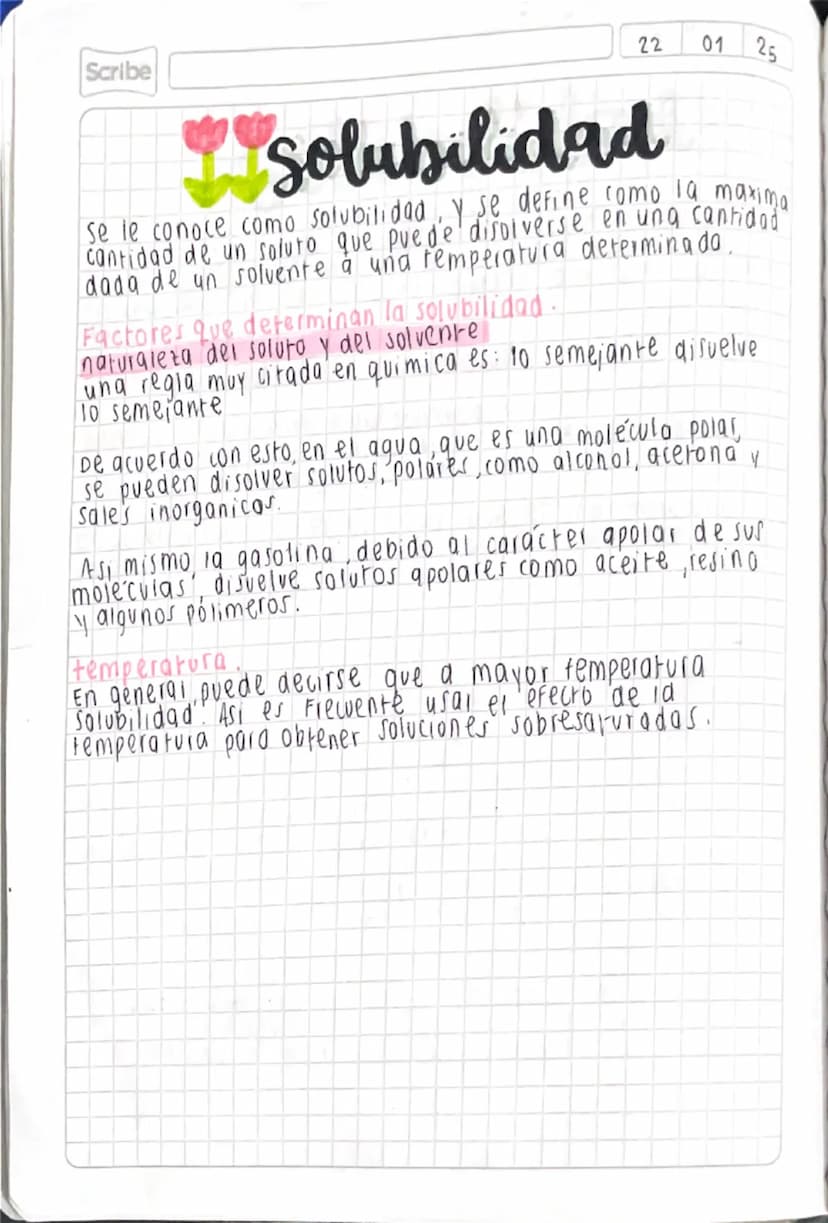 Scribe
22 01 25
solubilidad
Se le conoce como solubilidad, y se define como la maxima
cantidad de un soluto que puede disolverse en una cantidad
dada de un solvente a una temperatura determinada.
Factores que determinan la solubilidad.
naturaleza del soluto y del solvente
una regla muy citada en quimica es: lo semejante disuelve
lo semejante
De acuerdo con esto, en el agua, que es una molécula polar,
se pueden disolver solutos, polares, como alcohol, acetona y
sales inorganicas.
Asi mismo la gasolina, debido al carácter apolar de sus
moléculas, disuelve solutos apolares como aceite, resina
y algunos polimeros.
temperatura.
En general, puede decirse que a mayor temperatura
solubilidad. Asi es frecuente usar el efecto de la
temperatura para obtener soluciones sobresaturadas.